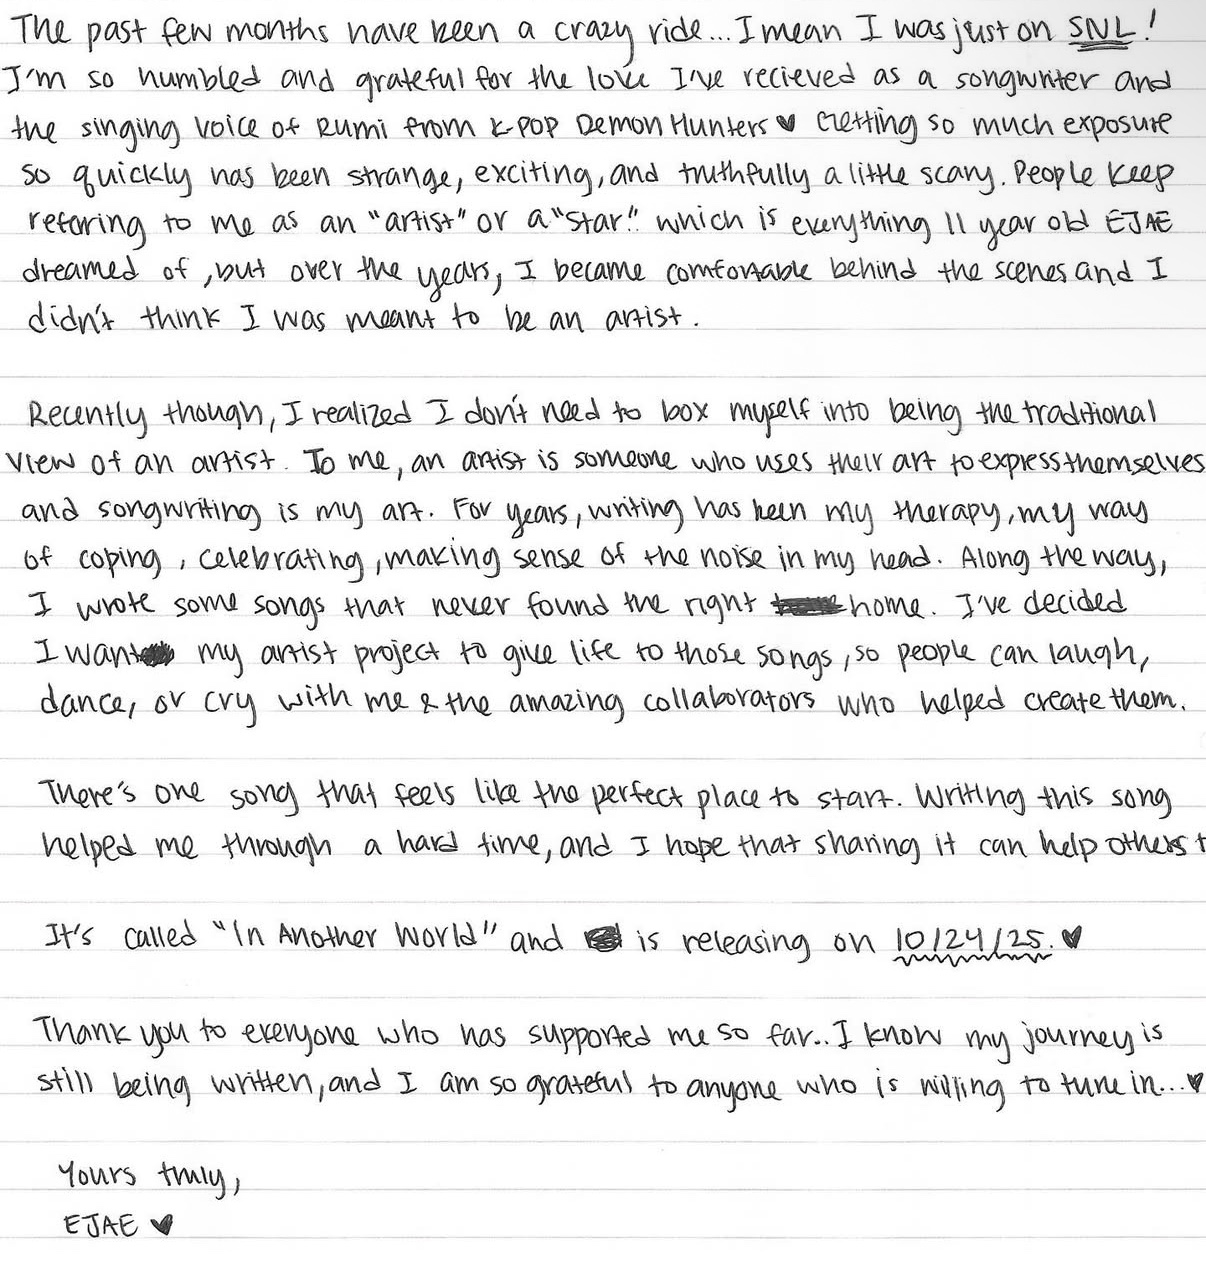 The past few months have been a crazy ride... I mean I was just on SNL!
I'm so humbled and grateful for the love I've recieved as a songwriter and
the singing voice of Rumi from K-POP Demon Hunters ♥ Getting so much exposure
so quickly has been strange, exciting, and truthfully a little scary. People keep
refering to me as an "artist" or a "star" which is everything 11 year old EJAE
dreamed of, but over the years, I became comfortable behind the scenes and I
didn't think I was meant to be an artist.
Recently though, I realized I don't need to box myself into being the traditional
view of an artist. To me, an artist is someone who uses their art to express themselves
and songwriting is my art. For years, writing has been my therapy, my way
of coping, celebrating, making sense of the noise in my head. Along the way,
I wrote some songs that never found the right home. I've decided
I want my artist project to give life to those songs, so people can laugh,
dance, or cry with me & the amazing collaborators who helped create them.
There's one song that feels like the perfect place to start. Writing this song
helped me through a hard time, and I hope that sharing it can help others t
It's called "In Another World" and is releasing on 10/24/25. ♥
Thank you to everyone who has supported me so far.. I know my journey is
still being written, and I am so grateful to anyone who is willing to tune in... ♥
Yours truly,
EJAE ♥